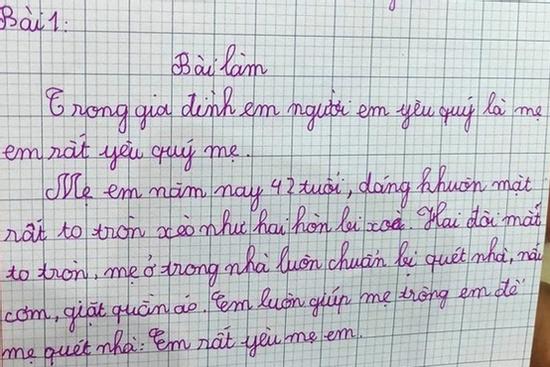 Bài 1:
Bài làm
Trong gia đình em người em yêu quý là mẹ
em rất yêu quý mẹ.
Mẹ em năm nay 42 tuổi, dáng khuôn mặt
rất to tròn xẻo như hai hòn bi xoa. Hai đôi mắt
to tròn, mẹ ở trong nhà luôn chuẩn bị quét nhà, nấu
cơm, giặt quần áo. Em luôn giúp mẹ trông em để
mẹ quét nhà: Em rất yêu mẹ em.